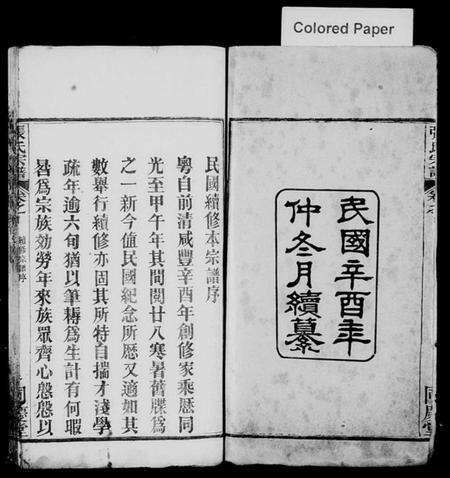 Colored Paper
民國辛酉年
仲冬月續纂
張氏宗譜
民國續修本宗譜序
粵自前清咸豐辛酉年創修家乘歷同
光至甲午年其間閱廿八寒暑舊牒爲
之一新今值民國紀念所歷又適如其
數舉行續修亦固其所特自揣才淺學
疏年逾六旬猶以筆耨爲生計有何暇
晷爲宗族効勞年來族眾齊心慇慇以
張氏宗譜